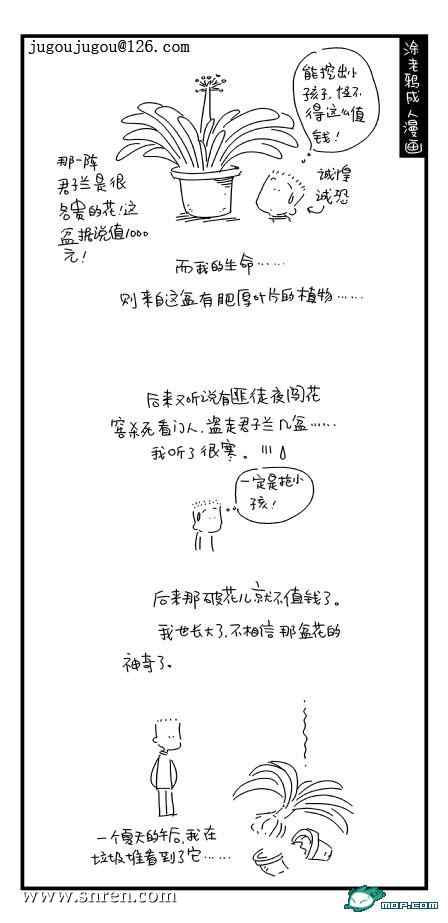 jugoujugou@126.com
涂老鸦成人漫画
能挖出小
孩子,怪不
得这么值
钱!
那一阵
君子兰是很
名贵的花!这
盆据说值1000
元!
诚惶
诚恐
而我的生命……
则来自这盆有肥厚叶片的植物……
后来又听说有匪徒夜闯花
窖杀死看门人,盗走君子兰几盆……
我听了很寒。
一定是抢小
孩!
后来那破花儿就不值钱了。
我也长大了,不相信那盆花的
神奇了。
一个夏天的午后,我在
垃圾堆看到了它……
www.snren.com
MOP.COM